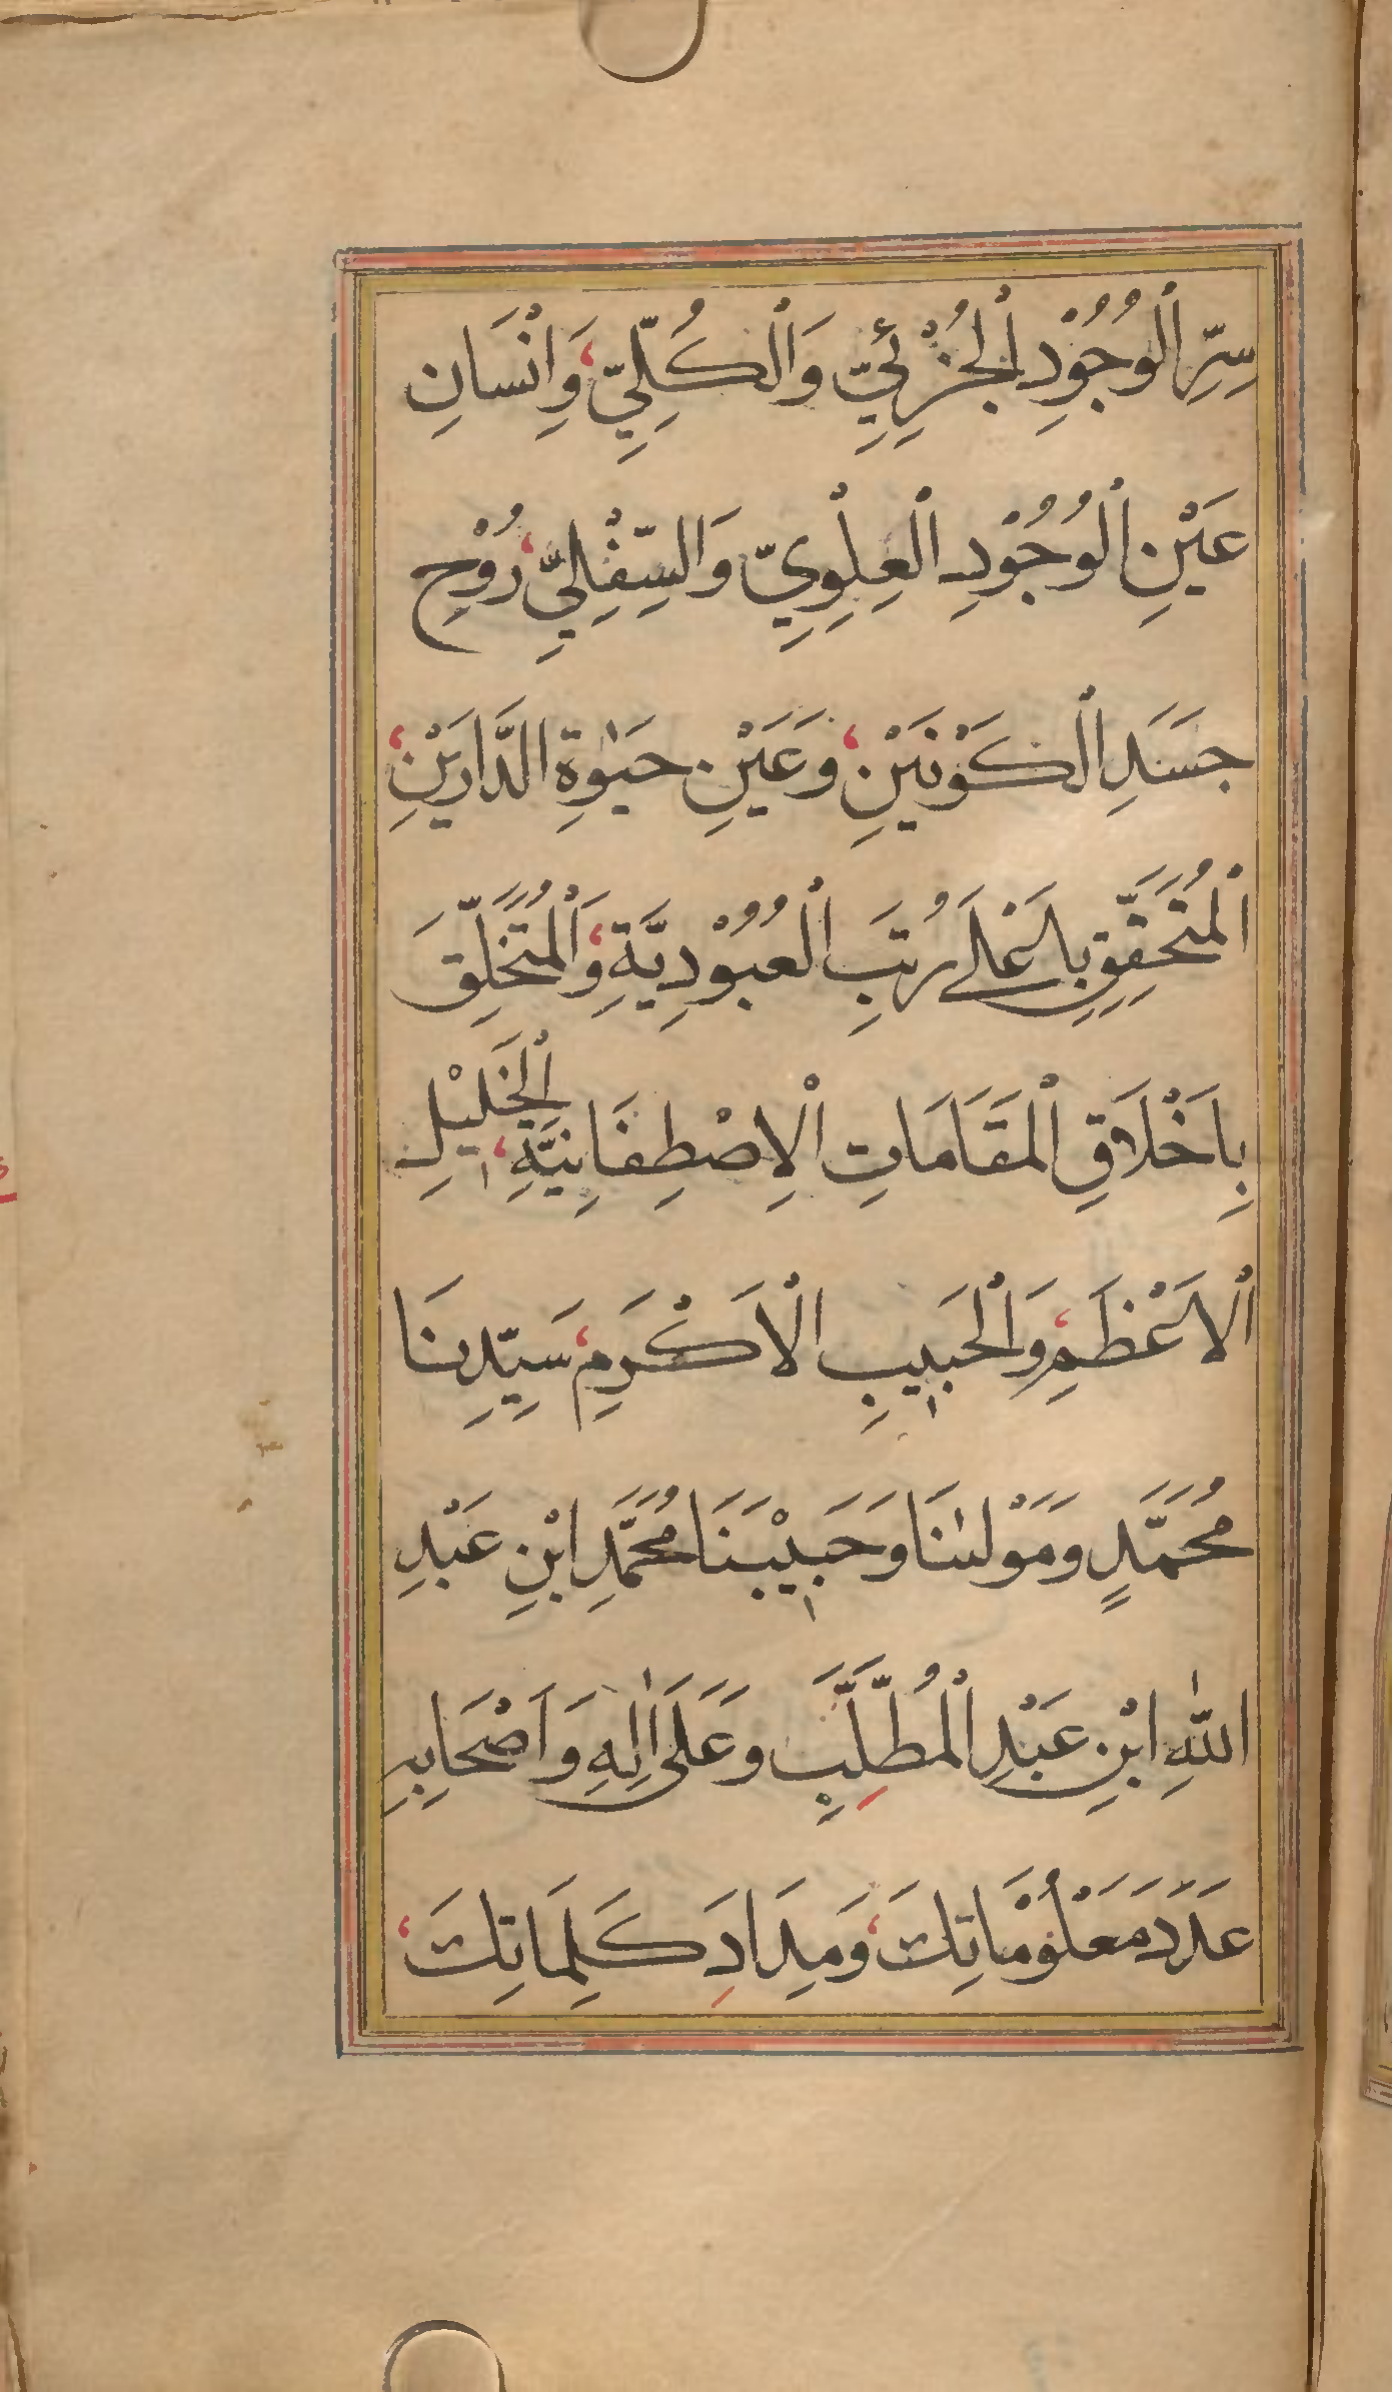 سِرِّ الْوُجُوْدِ الْجُزْئِيِّ وَالْكُلِّيِّ، وَاِنْسَانِ
عَيْنِ الْوُجُوْدِ الْعِلْوِيِّ وَالسِّفْلِيِّ، رُوْحِ
جَسَدِ الْكَوْنَيْنِ، وَعَيْنِ حَيٰوةِ الدَّارَيْنِ،
الْمُتَحَقِّقِ بِاَعْلَى رُتَبِ الْعُبُوْدِيَّةِ، وَالْمُتَخَلِّقَ
بِاَخْلَاقِ الْمَقَامَاتِ الْاِصْطِفَائِيَّةِ، الْخَلِيْلِ
الْاَعْظَمِ، وَالْحَبِيبِ الْاَكْرَمِ، سَيِّدِنَا
مُحَمَّدٍ وَمَوْلٰىنَا وَحَبِيْبَنَا مُحَمَّدِ ابْنِ عَبْدِ
اللّٰهِ ابْنِ عَبْدِ الْمُطَّلِبِ وَعَلَى اٰلِهِ وَاَصْحَابِهِ
عَدَدَ مَعْلُوْمَاتِكَ، وَمِدَادِ كَلِمَاتِكَ،